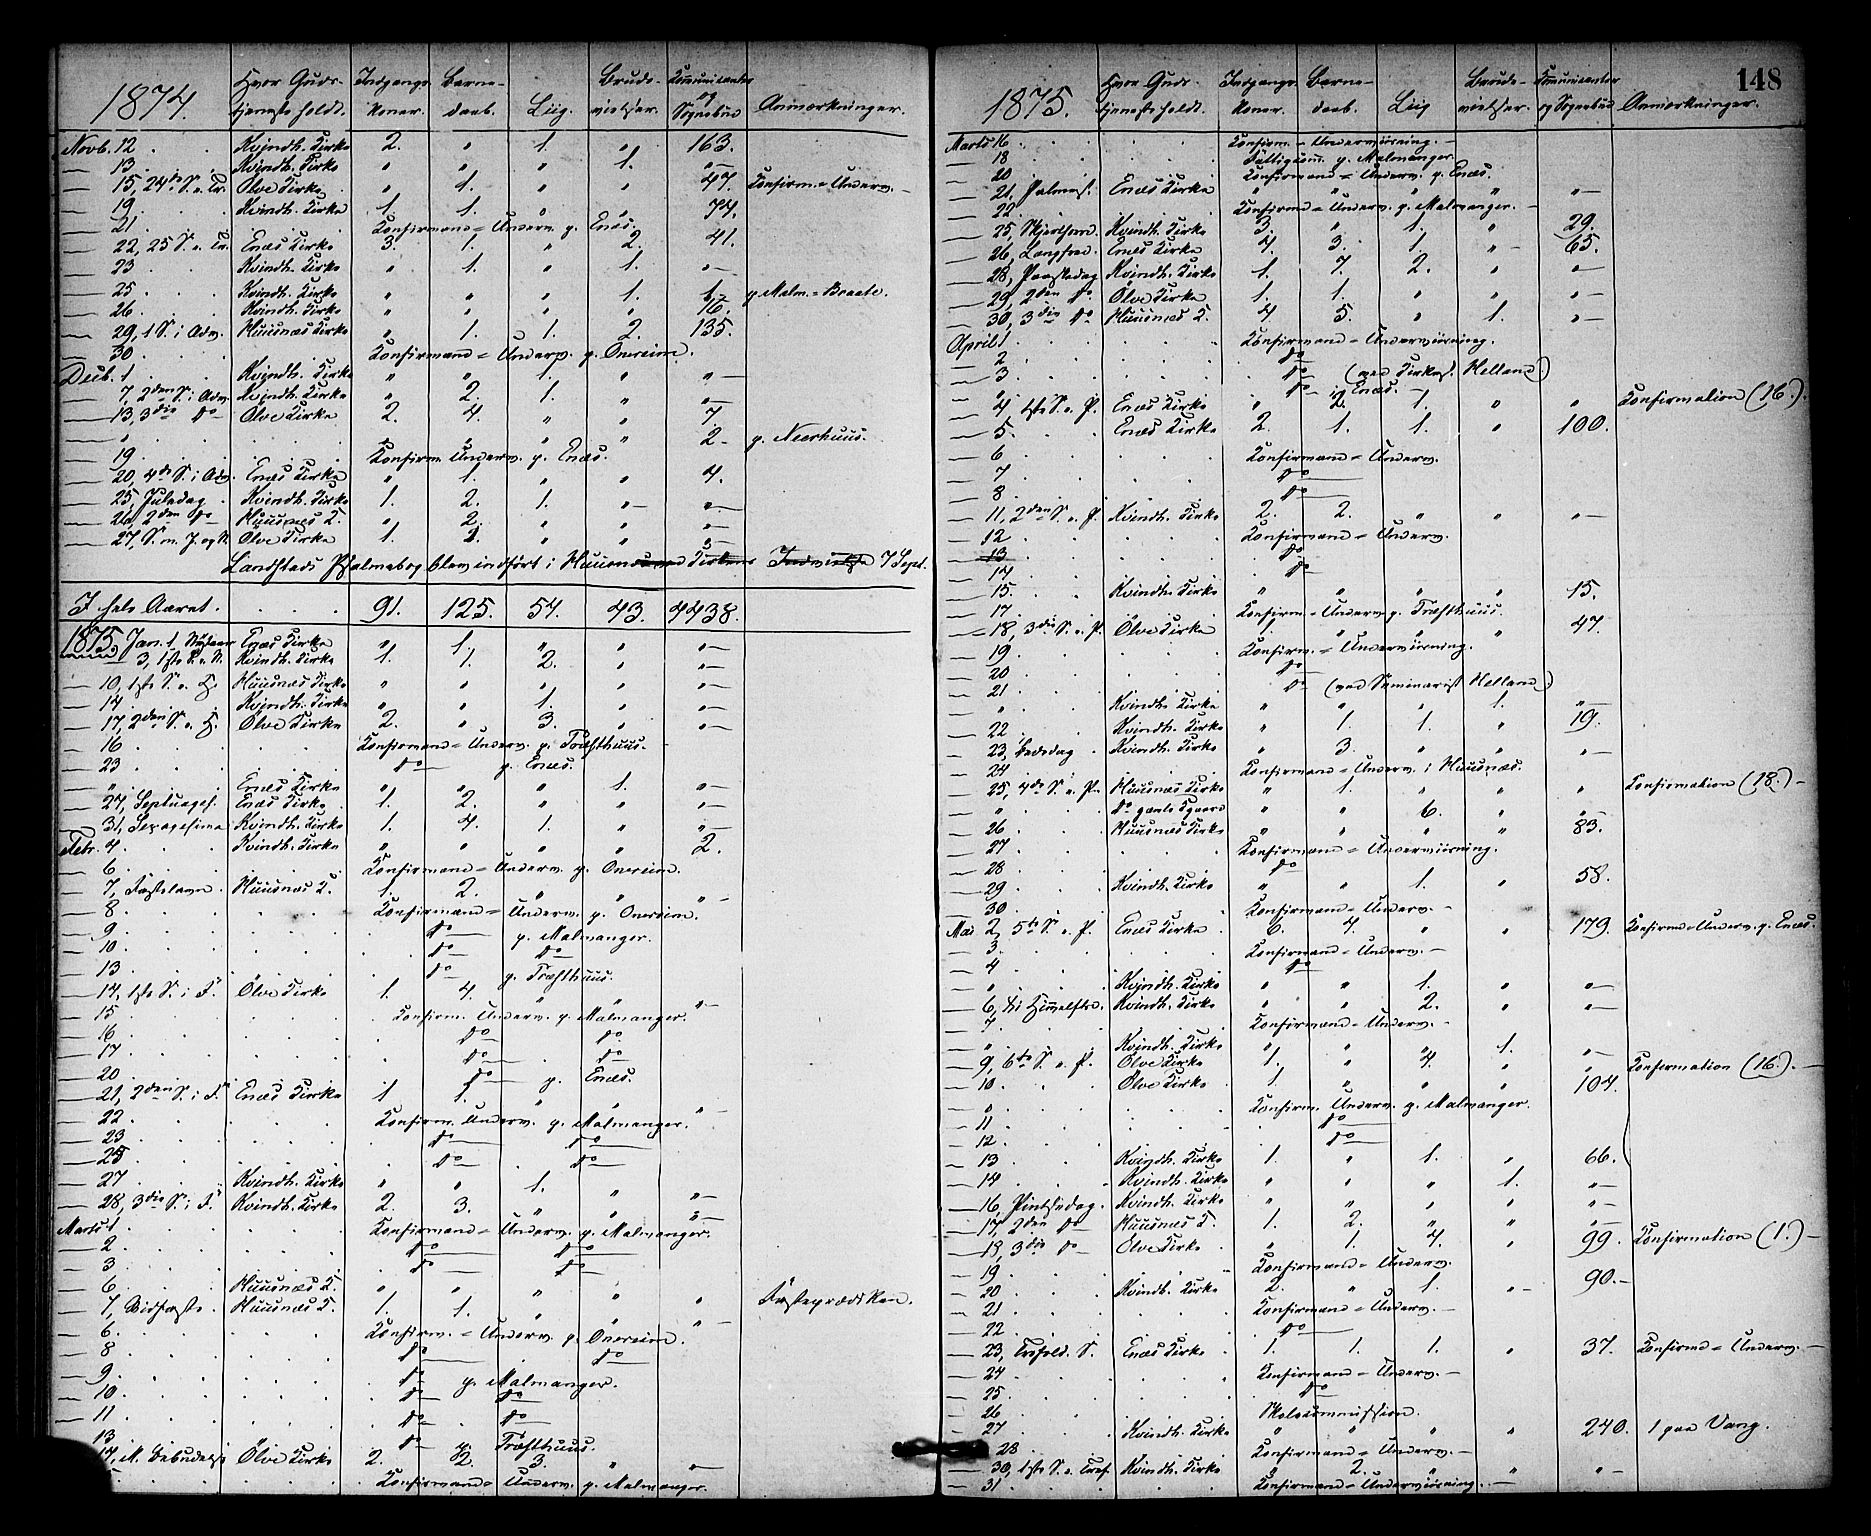 1874. Hvor Guds- tjeneste holdt. Indgangs- koner. Barne- daab. Liig. Brude- vielser. Communicanter og Sognebud Anmærkninger.
Novb. 12 . . Kvindh. Kirke 2. " 1. " 163.
— 13 . . Kvindh. Kirke " " " 1. "—
— 15, 24de S. e. Tr. Ölve Kirke " 1. " " 47. Confirm.=Underv. —
— 19 . . Kvindh. Kirke 1. 1. " " 74.
— 21 . . Confirmand=Underv. p. Enæs.
— 22, 25 S. e. Tr. Enæs Kirke 3. 1. " 2. 41.
— 23 . . Kvindh. Kirke " 1. " 1. "—
— 25 . . Kvindh. Kirke " " " 1. 1. p. Malm.=Braate.
— 26 . . Kvindh. Kirke " " " " 16.
— 29, 1 S. i Adv. Huusnæs Kirke " 1. 1. 2. 135.
— 30 . . Confirmand=Underv. p. Onereim.
Decb. 1 . . Kvindh. Kirke " " 1. " "—
— 7, 2den S. i Adv. Kvindh. Kirke " 2. 1. " "—
— 13, 3die do Ölve Kirke 2. 4. " " 7.
— " . . " " " " 2. p. Neerhuus.
— 19 . . Confirm. Underv. p. Enæs.
— 20, 4de S. i Adv. Enæs Kirke " 1. " " 4.
— 25, Juledag . Kvindh. Kirke 1. 2. 1. "— "—
— 26, 2den do Huusnæs K. " 2. " " "—
— 27, S. m. J. og N. Ölve Kirke 1. 2. " " "—
Landstads Psalmebog blev indført i Huusnæs Kirke 7 Sept.
I hele Aaret . . . . 91. 125. 54. 43. 4438.
1875, Jan. 1. Nytaar Enæs Kirke " 1. " " "—
3, 1ste S. e. N. Kvindh. Kirke 1. 1. 2. " "—
— 10, 1ste S. e. H. Huusnæs Kirke " " " " "—
— 14 . . Kvindh. Kirke " " 1. " "—
— 17, 2den S. e. H. Ölve Kirke 2. " 3. " "—
— 16 . . Confirmand=Underv. p. Træsthuus.
— 23 . . do p. Enæs.
— " . . Enæs Kirke " " " 1. "—
— 24, Septuages. Enæs Kirke . 1. 2. " " "—
— 31, Sexagesima Kvindh. Kirke 1. 4. 1. " "—
Febr. 4 . . Kvindh. Kirke " " " " 2.
— 6 . . Confirmand=Underv. p. Onereim.
— 7, Fastelavn . Huusnæs K. 1. 2. " " "—
— 8 . . Confirmand=Underv. p. Onereim.
— 9 . . do p. Malmanger.
— 10 . . do do
— 13 . . do p. Træsthuus.
— 14, 1ste S. i F. Ölve Kirke 1. 4. " " "—
— 15 . . Confirm. Underv. p. Malmanger.
— 16 . . do do
— 17 . . do do
— 20 . . do p. Enæs.
— 21, 2den S. i F. Enæs Kirke 1 1. " " "—
— 22 . . Confirm. Underv. p. Malmanger.
— 23 . . do do
— 25 . . do do
— 27 . . Kvindh. Kirke " " 1. " "—
— 28, 3die S. i F. Kvindh. Kirke 2. 3. " " "—
Marts 1 . . Confirmand=Underv. p. Malmanger.
— 2 . . do do
— 3 . . do do
— 6 . . Huusnæs K. " " " " " Fasteprædiken.
— 7, Midfaste . Huusnæs K. 1. 1. " " "—
— 6. . . Confirm.=Underv. p. Onereim.
— 8 . . do do
— 9 . . do p. Malmanger.
— 10 . . do do
— 11 . . do do
13 . . do p. Træsthuus.
14, M. Bebudelse Ölve Kirke 2. 2. 3. " "—
Confirmand=Underv. p. Malmanger.
148
1875. Hvor Guds- tjeneste holdt. Indgangs- koner. Barne- daab. Liig Brude- vielser. Communicanter og Sognebud Anmærkninger.
Marts 16 . . Confirm.=Underviisning. —
— 18 . . Fattigcom. p. Malmanger.
— 20 . . Confirmand=Underv. p. Enæs.
— 21, Palmes. Enæs Kirke " " " " "—
— 22 . . Confirmd=Underv. p. Malmanger. —
— 25, Skjærthorsd. Kvindh. Kirke 3. " 1. " 29.
— 26, Langfred. Enæs Kirke 4. 3. 1. "— 65.
— 28, Paaskedag Kvindh. Kirke 1. 7. 2. " "—
— 29, 2den do Ölve Kirke 1. 1. " " "—
— 30, 3die do Huusnæs K. 4 5. " 1. "—
April 1 . . Confirmand=Underviisning.
— 2 . . do
— 3 . . do (ved Kirkes. Helland)
— " . . do p. Enæs. —
— 4, 1ste S. e. P. Enæs Kirke " 2. 1. " " Confirmation (16.).
— 5. . . Enæs Kirke 2. 1. 1. " 100.
— 6 . . Confirmand=Underv.
— 7 . . do
— 8 . . do
— 11, 2den S. e. P. Kvindh. Kirke 2. 2. " " "—
— 12 . . Confirmand=Underv.
— 13 . . do
— 14 . . do
— 15. . . Kvindh. Kirke " " " " 15.
— 17 . . Confirm.=Underv. p. Træsthuus.
— 18, 3die S. e. P. Ölve Kirke 1. " " " 47.
— 19 . . Confirm.=Underviisning.
— 20 . . do
— 21 . . do (ved Seminarist Helland.)
— " . . Kvindh. Kirke " " " 1. "—
— 22 . . Kvindh. Kirke " 1. 1. " 19.
— 23, Bededag . Kvindh. Kirke " 3. " " "—
— 24 . . Confirmand=Underv. i Huusnæs.
— 25, 4de S. e. P. Huusnæs Kirke " 1. " " " Confirmation (18.) —
— " . . do gamle Kgaard " " 6. " "
— 26 . . Huusnæs Kirke " " " " 83.
— 27 . . Confirmand=Underviisning.
— 28 . . do
— 29 . . Kvindh. Kirke " " 1. " 58.
— 30. . . Confirmand=Underv. —
Mai 2, 5te S. e. P. Enæs Kirke . 6. 4. " " 179. Confirmd=Underv. p. Enæs.
— 3. . . Confirmand=Underv. —
— 4 . . do
— " . . Kvindh. Kirke " " 1. " "—
— 6, Xi Himmelfrd. Kvindh. Kirke " " 2. " "—
— 7 . . Confirmand=Underv. —
— " . . Kvindh. Kirke " " " 1. "—
— 9, 6te S. e. P. Ölve Kirke 1. " 4. " " Confirmation (16.). —
— 10. . . Ölve Kirke . 1 " " " 104.
— " . . Confirm. Underv. p. Malmanger.
— 11 . . do
— 12. . . do
— 13 . . Kvindh. Kirke 1. " 1. " 66.
— 14 . . Kvindh. Kirke " " " 1. "—
— 16, Pintsedag . Kvindh. Kirke " " " " "—
— 17, 2den do Huusnæs K. 1. 2. " " "—
— 18, 3die do Ölve Kirke " 1. 4. " 99. Confirmation (1.) —
— 19 . . Confirmand=Underv.
— 20 . . Kvindh. Kirke 2. " 1. "— 90. —
— 21 . . Confirmand=Underv. —
— 22 . . do
— 23, Trefold. S. Enæs Kirke . 1. 1. 1. " 37. Confirmd=Underv. —
— 24 . . Confirmand=Underv. —
— 25 . . do
— 26 . . Skolecommission.
— 27 . . Kvindh. Kirke " " " " 240. 1 paa Vang.
— 28 . . Confirmand=Underv. —
— 30, 1ste S. e. Tref. Kvindh. Kirke " 2. " " "—
— 31 . . Confirmand=Underviisning. —